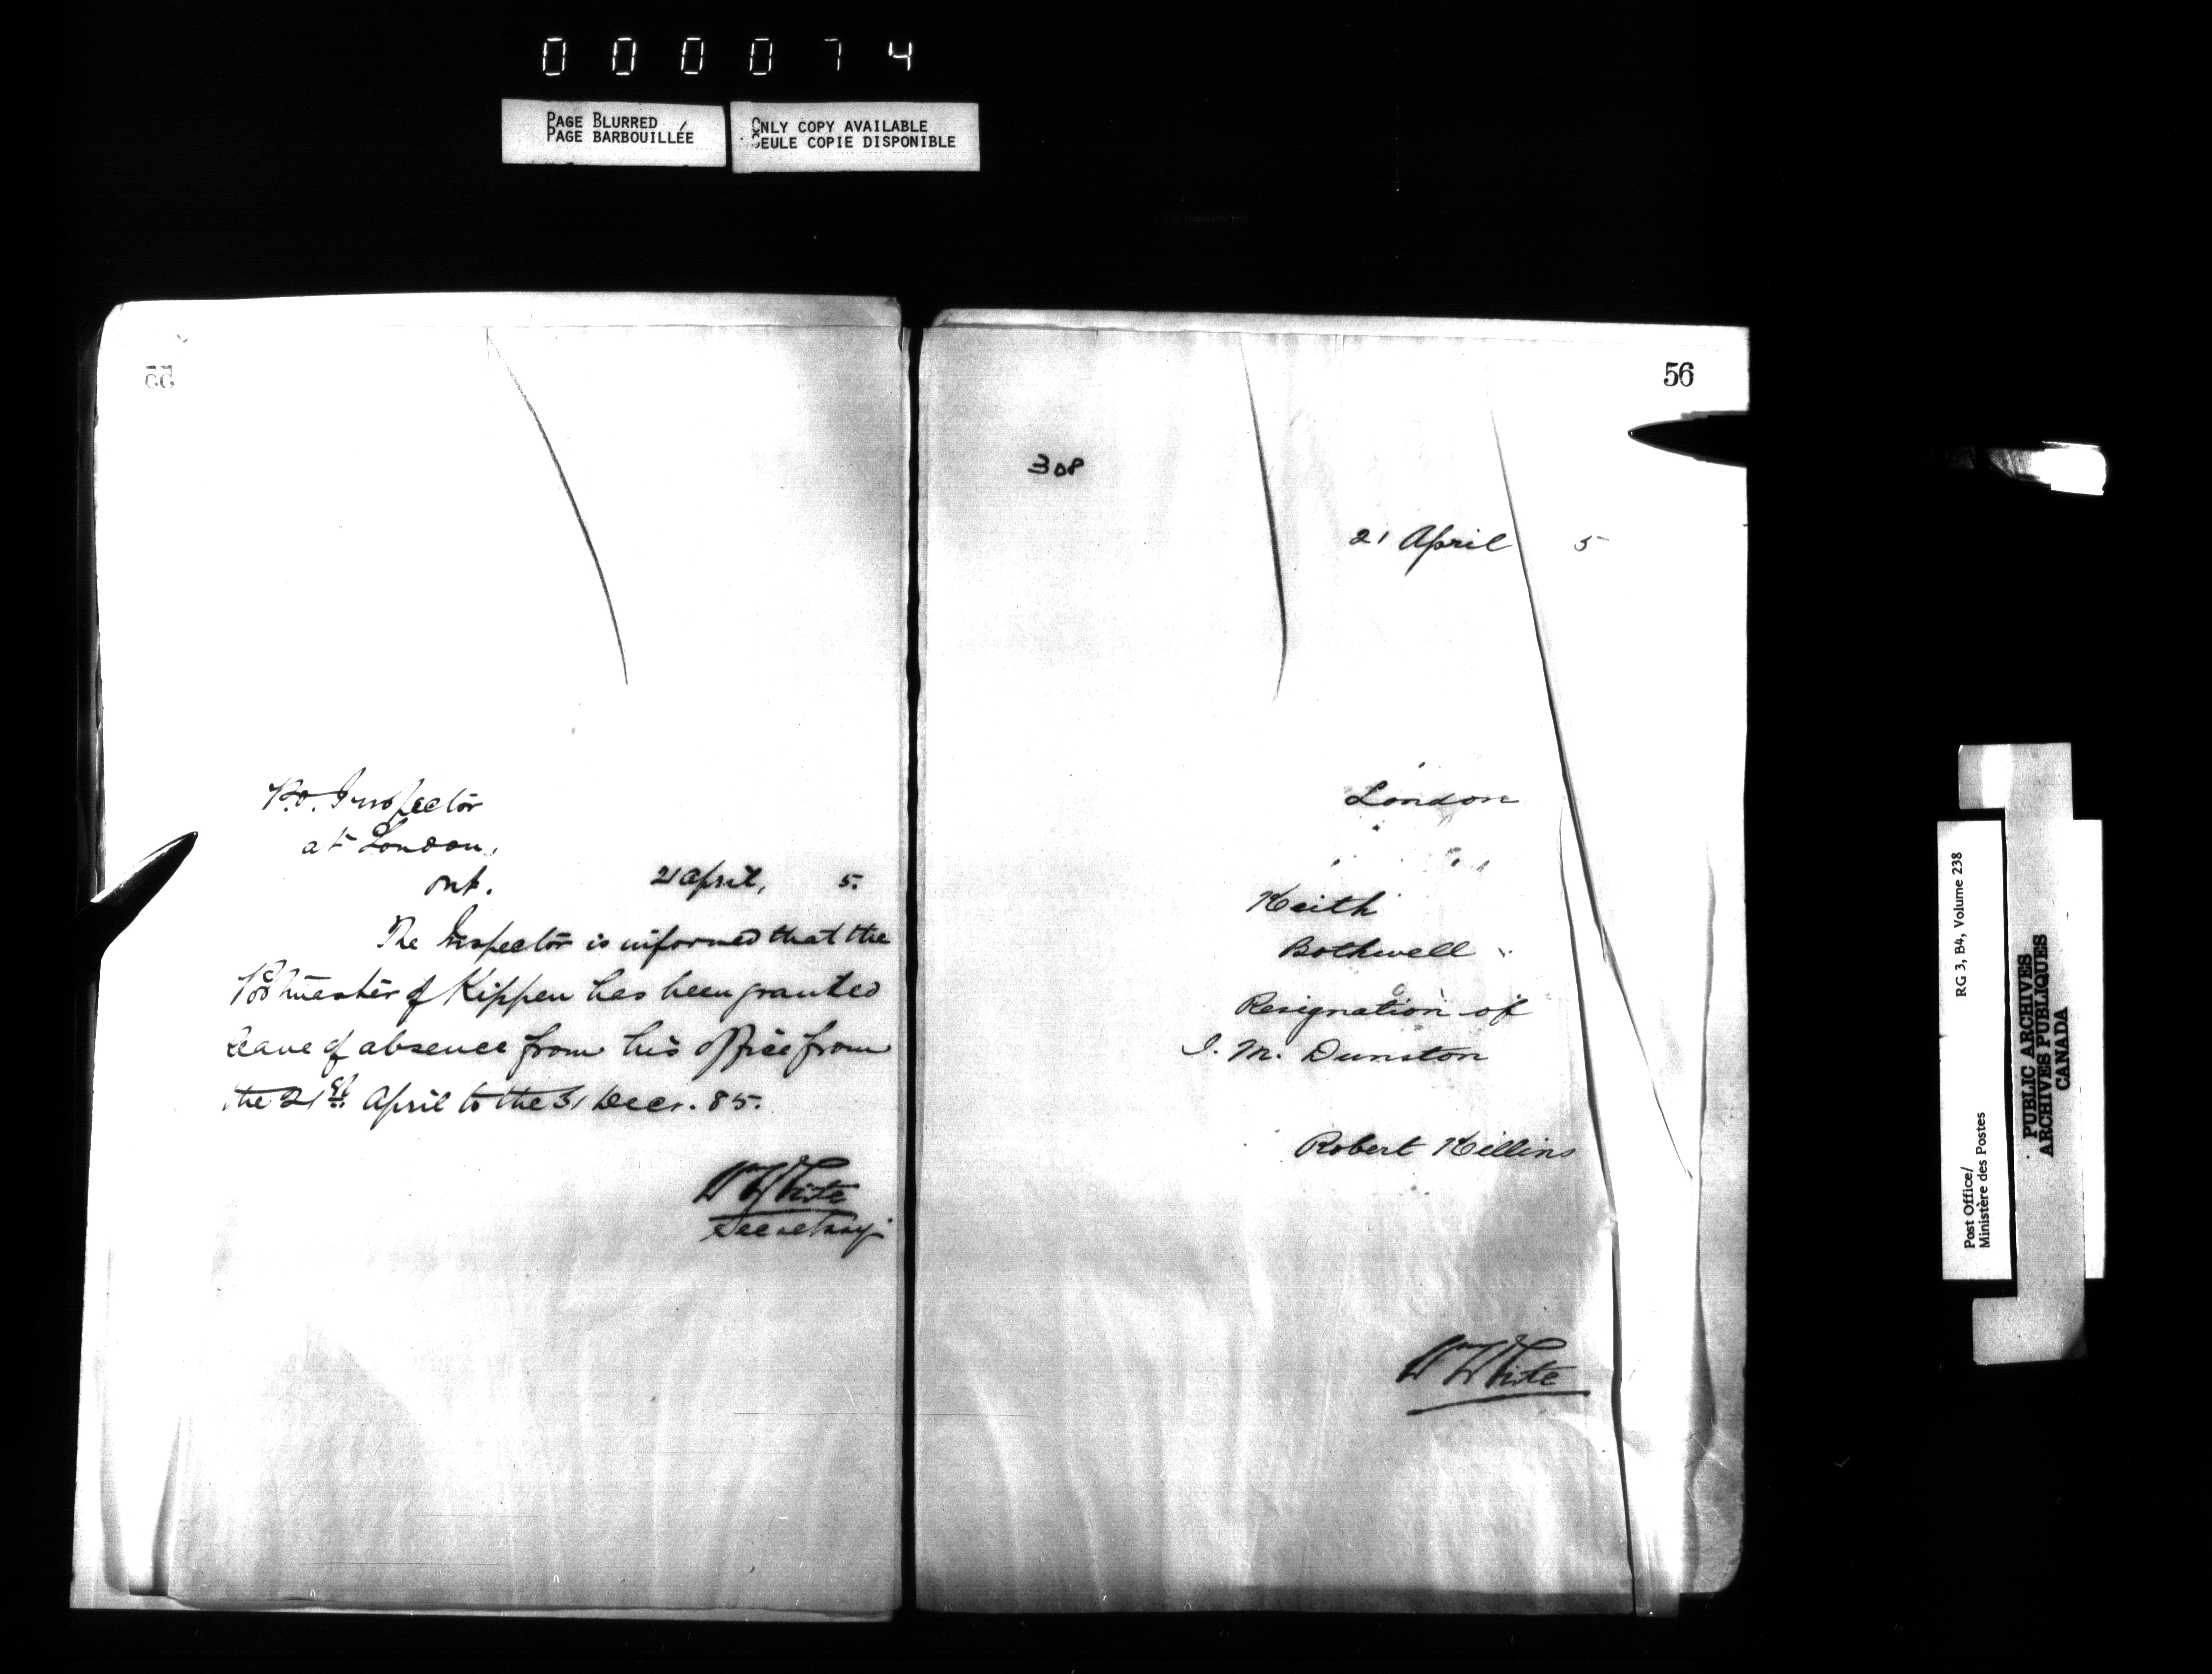 000074
PAGE BLURRED
PAGE BARBOUILLÉE
ONLY COPY AVAILABLE
SEULE COPIE DISPONIBLE
55
P.O. Inspector
at London,
Ont.
21 April, 5.
The Inspector is informed that the
Postmaster of Kippen has been granted
leave of absence from his office from
the 21st April to the 31 Decr. 85.
Wm White
Secretary
56
308
21 April 5
London
Keith
Bothwell
Resignation of
I. M. Dunston
Robert Killins
Wm White
Post Office/
Ministère des Postes
RG 3, B4, Volume 238
PUBLIC ARCHIVES
ARCHIVES PUBLIQUES
CANADA